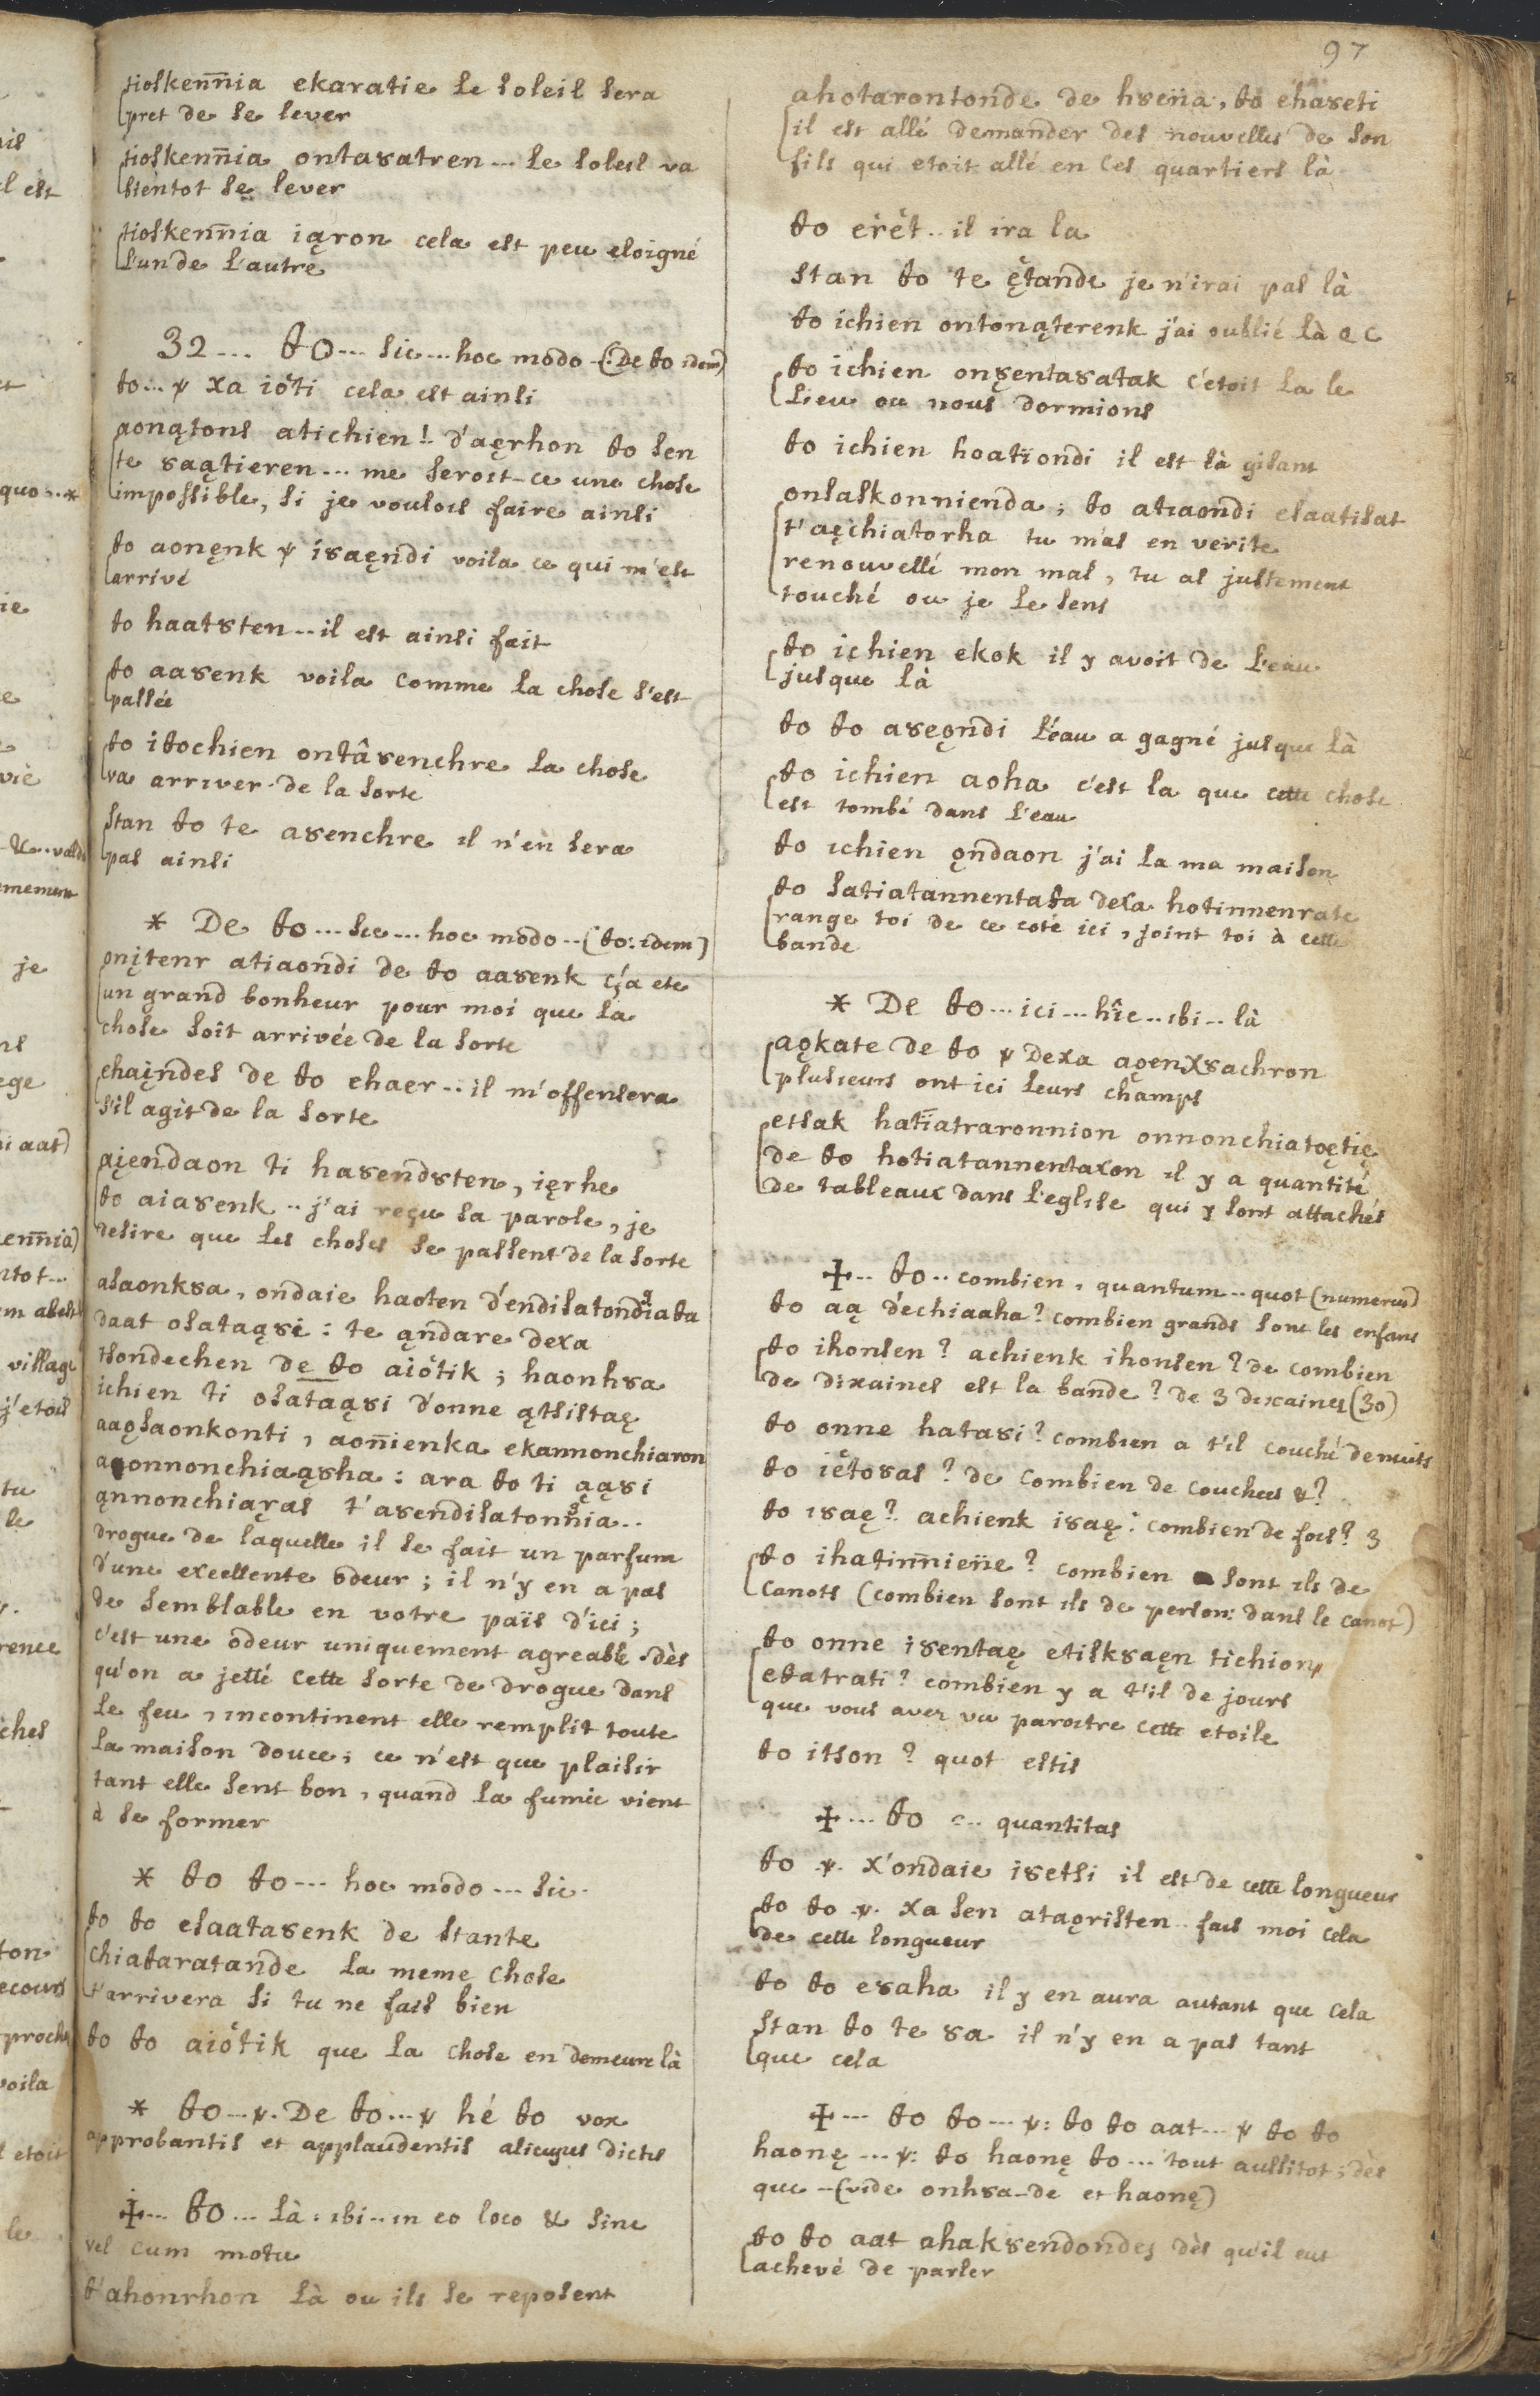 97
tioskennia ekaratie le soleil sera
pret de se lever
tioskennia onta8atren... le soleil va
bientot se lever
tioskennia iąron cela est peu eloigné
l'un de l'autre
32... ꝋo... sic... hoc modo.. (De ꝋo idem)
ꝋo... ѱ xa ioti cela est ainsi
aonątons atichien! d'aęrhon ꝋo sen
te 8aątieren... me seroit-ce une chose
impossible, si je voulois faire ainsi
ꝋo aonęnk ѱ i8aęndi voila ce qui m'est
arrivé
ꝋo haat8ten.. il est ainsi fait
ꝋo aa8enk voila comme la chose s'est
passée
ꝋo iꝋochien ontâ8enchre la chose
va arriver de la sorte
stan ꝋo te a8enchre il n'en sera
pas ainsi
* De ꝋo... sic... hoc modo.. (ꝋo: idem)
onįtenr atiaondi de ꝋo aa8enk ç'a ete
un grand bonheur pour moi que la
chose soit arrivée de la sorte
ehaįndes de ꝋo ehaer... il m'offensera
s'il agit de la sorte
aįendaon ti ha8end8ten, ięrhe
ꝋo aia8enk.. j'ai reçu sa parole, je
desire que les choses se passent de la sorte
asaonk8a, ondaie haoten d'endisatondiaꝋa
daat osataą8i: te ąndare dexa
tsondechen de ꝋo aiotik; haonh8a
ichien ti osataą8i d'onne ątsistaę
aaǫsaonkonti, aonienka ekannonchiaron
aonnonchiaą8ha: ara ꝋo ti ąą8i
ąnnonchiaras t'a8endisatonnia..
drogue de laquelle il se fait un parfum
d'une excellente odeur; il n'y en a pas
de semblable en votre païs d'ici;
c'est une odeur uniquement agreable. dès
qu'on a jetté cette sorte de drogue dans
le feu, incontinent elle remplit toute
la maison douce; ce n'est que plaisir
tant elle sent bon, quand la fumée vient
à se former
* ꝋo ꝋo... hoc modo... sic.
ꝋo ꝋo esaata8enk de stante
chiaꝋaratande la meme chose
t'arrivera si tu ne fais bien
ꝋo ꝋo aiotik que la chose en demeure là
* ꝋo... ѱ. De ꝋo... ѱ hé ꝋo vox
approbantis et applaudentis alicujus dictis
✠... ꝋo... là: ibi.. in eo loco & sine
vel cum motu
ꝋ'ahonrhon là ou ils se reposent
ahotarontonde de h8ena, ꝋo eha8eti
il est allé demander des nouvelles de son
fils qui etoit allé en ces quartiers là
ꝋo erèt.. il ira la
stan ꝋo te ętande je n'irai pas là
ꝋo ichien ontonąterenk j'ai oublié là Q C
ꝋo ichien onęenta8atak c'etoit la le
lieu ou nous dormions
ꝋo ichien hoationdi il est là gisant
onsaskonnienda; ꝋo atiaondi esaatisat
t'aęchiatorha tu m'as en verite
renouvellé mon mal, tu as justement
touché ou je le sens
ꝋo ichien ekok il y avoit de l'eau
jusque là
ꝋo ꝋo a8eǫndi l'eau a gagné jusque là
ꝋo ichien aoha c'est la que cette chose
est tombé dans l'eau
ꝋo ichien ǫndaon j'ai la ma maison
ꝋo satiatannentaꝋa dexa hotinnenrate
range toi de ce coté ici, joint toi à cette
bande
* De ꝋo... ici... hîc.. ibi.. là
aǫkate de ꝋo ѱ dexa aǫenx8achron
plusieurs ont ici leurs champs
etsak hatiatraronnion onnonchiatoętię
de ꝋo hotiatannentaxon il y a quantité
de tableaux dans l'eglise qui y sont attachés
✠.. ꝋo.. combien, quantum.. quot (numerus)
ꝋo aą d'echiaaha? combien grands sont les enfans
ꝋo ihonsen? achienk ihonsen? de combien
de dixaines est la bande? de 3 dexaines (30)
ꝋo onne hata8i? combien a t'il couché de nuits
ꝋo iętosas? de combien de couchees &?
ꝋo i8aę? achienk i8aę: combien de fois? 3
ꝋo ihatinniene? combien sont ils de
canots (combien sont ils de person: dans le canot)
ꝋo onne i8entaę etisk8aęn tichion
eꝋatrati? combien y a t'il de jours
que vous avez vu paroitre cette etoile
ꝋo itson? quot estis
✠... ꝋo ... quantitas
ꝋo ѱ. x'ondaie i8etsi il est de cette longueur
ꝋo ꝋo ѱ. xa sen ataǫristen.. fais moi cela
de cette longueur
ꝋo ꝋo e8aha il y en aura autant que cela
stan ꝋo te 8a il n'y en a pas tant
que cela
✠... ꝋo ꝋo... ѱ: ꝋo ꝋo aat... ѱ ꝋo ꝋo
haonę... ѱ: ꝋo haonę ꝋo... tout aussitot; dès
que.. (vide onh8a-de et haonę)
ꝋo ꝋo aat ahak8endondes dès qu'il eut
achevé de parler